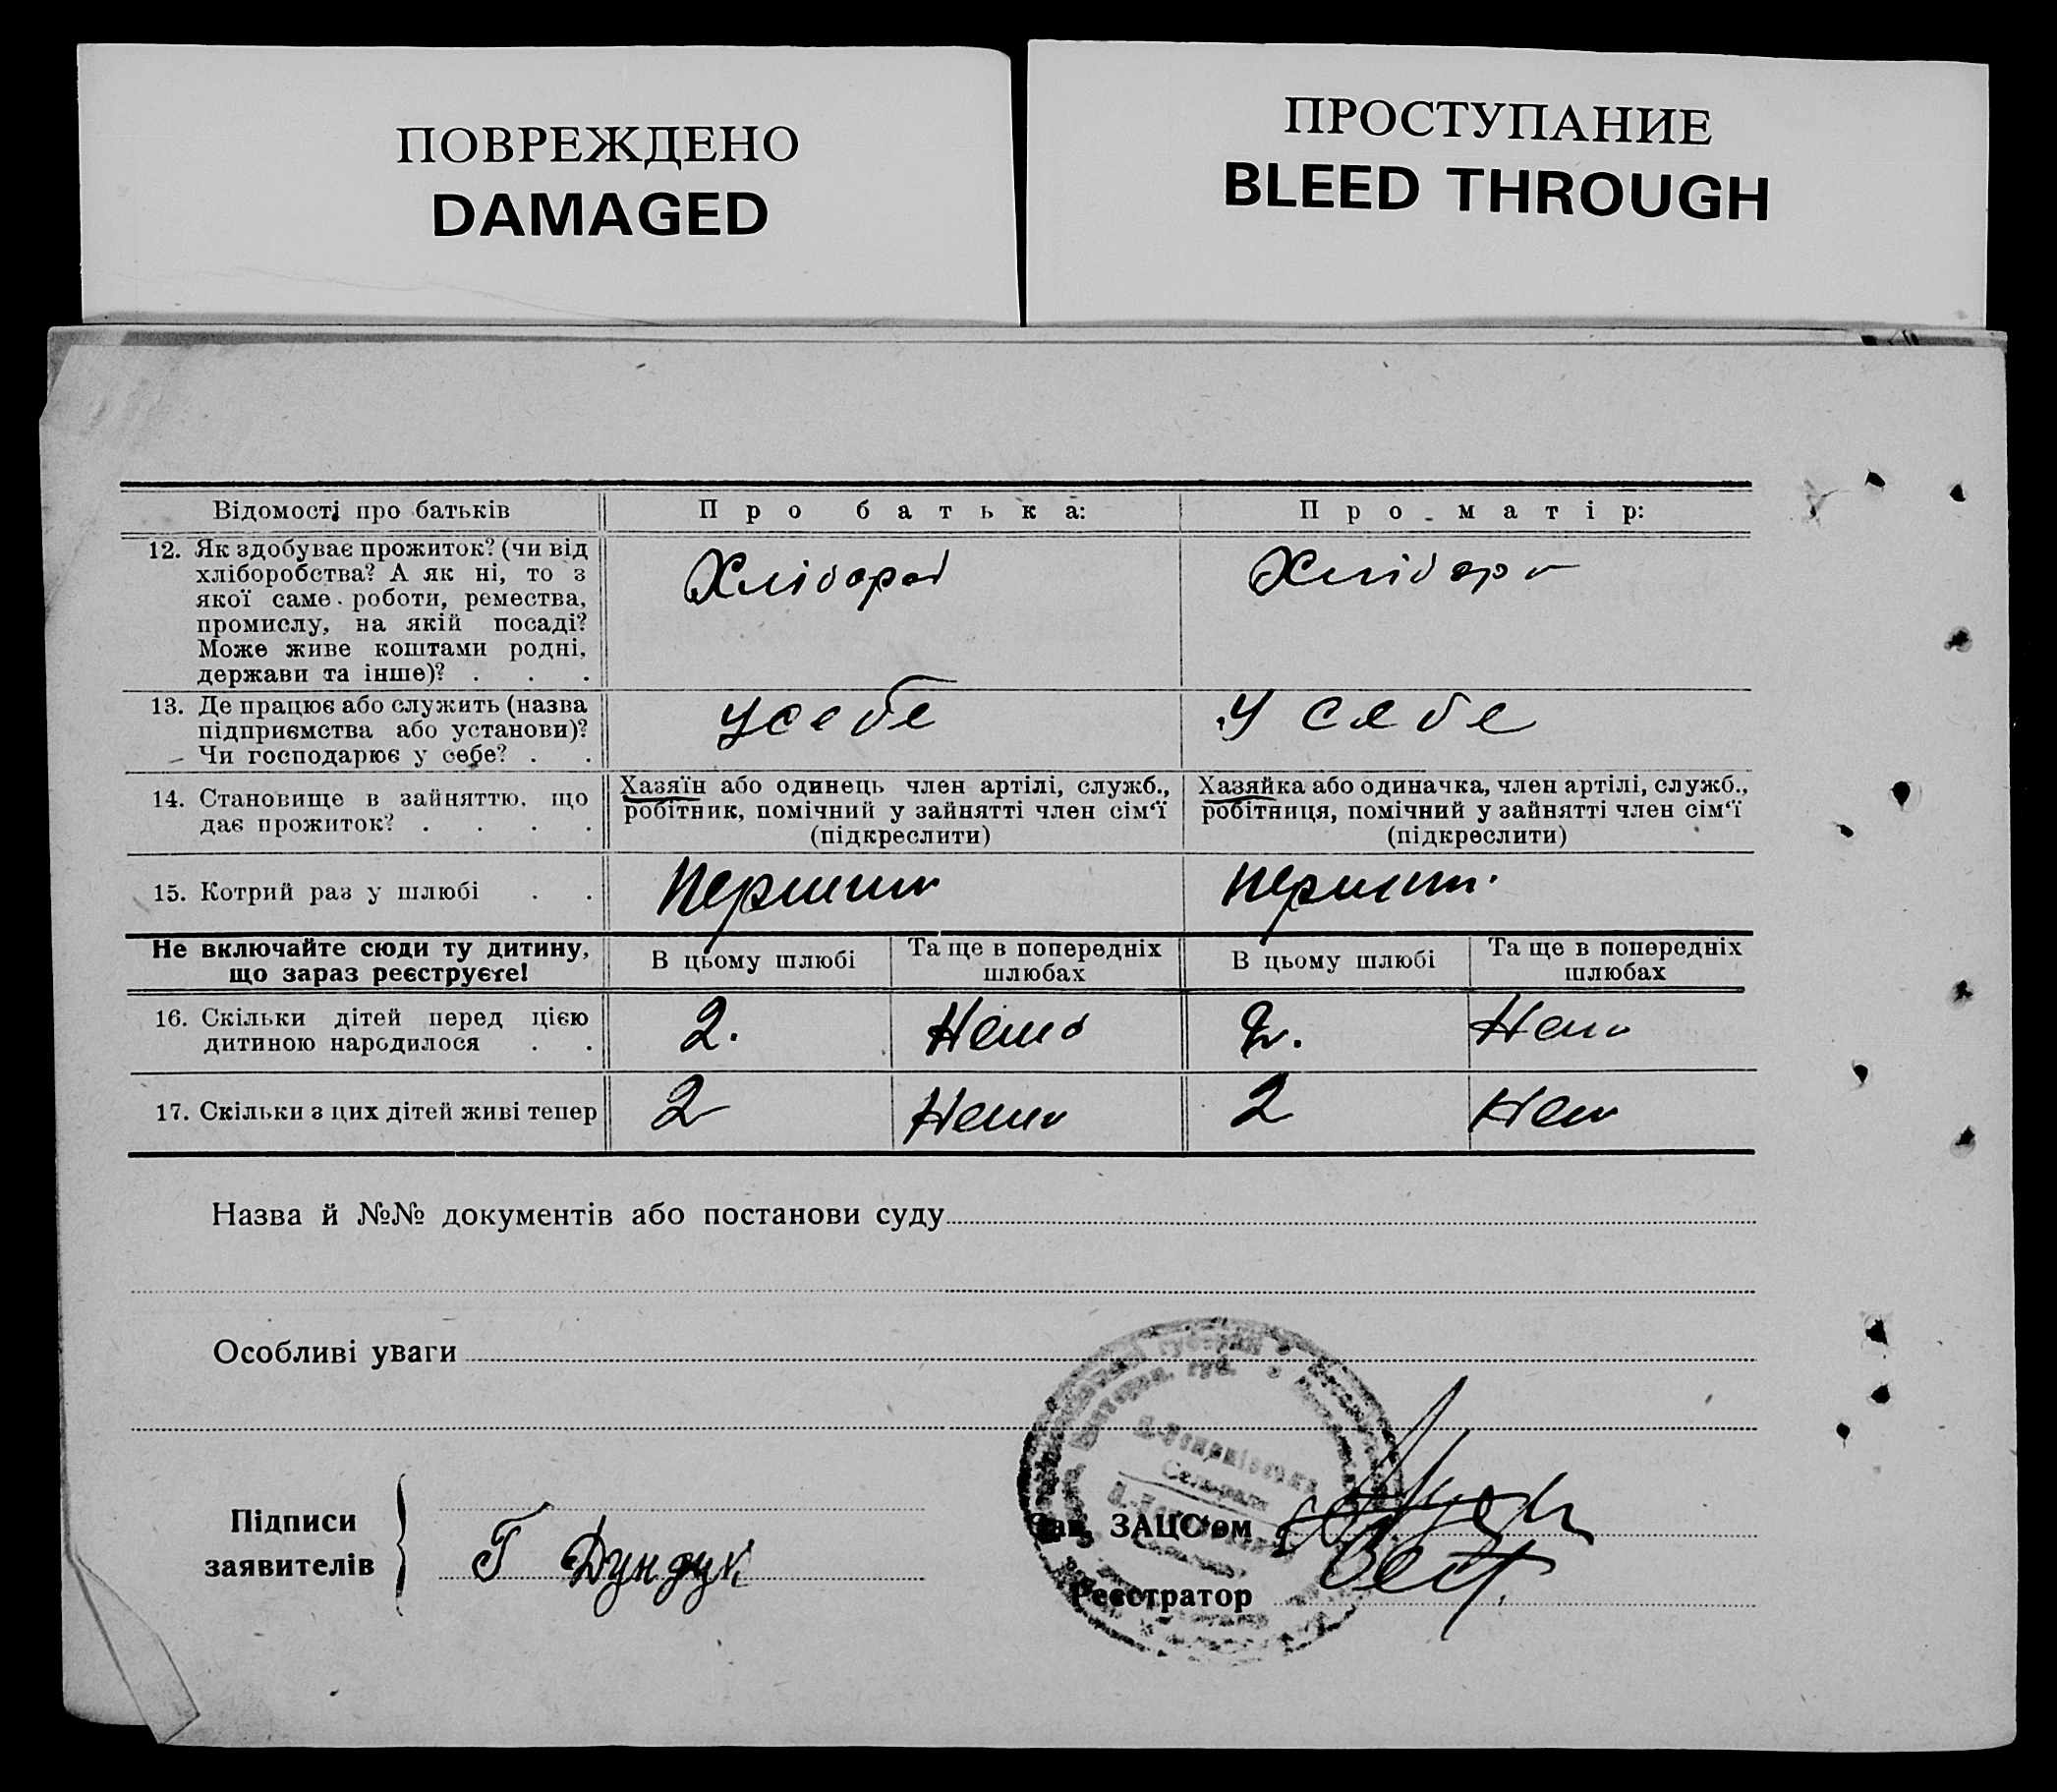 ПОВРЕЖДЕНО
DAMAGED
ПРОСТУПАНИЕ
BLEED THROUGH
Відомості про батьків
Про батька:
Про матір:
12. Як здобуває прожиток? (чи від
хліборобства? А як ні, то з
якої саме роботи, ремества,
промислу, на якій посаді?
Може живе коштами родні,
держави та інше)? . . .
Хлібороб
13. Де працює або служить (назва
підприємства або установи)?
Чи господарює у себе? . .
У себе
У себе
14. Становище в зайняттю, що
дає прожиток? . . . .
Хазяїн або одинець член артілі, служб.,
робітник, помічний у зайнятті член сім‘ї
(підкреслити)
Хазяйка або одиначка, член артілі, служб.,
робітниця, помічний у зайнятті член сім‘ї
(підкреслити)
15. Котрий раз у шлюбі . .
Перший
Не включайте сюди ту дитину,
що зараз реєструєте!
В цьому шлюбі
Та ще в попередніх
шлюбах
В цьому шлюбі
Та ще в попередніх
шлюбах
16. Скільки дітей перед цією
дитиною народилося . .
2.
Нема
2.
17. Скільки з цих дітей живі тепер
2
Нема
2
Назва й №№ документів або постанови суду
Особливі уваги
Підписи
заявителів
Г Дундук
Зав. ЗАЦС‘ом
Реєстратор